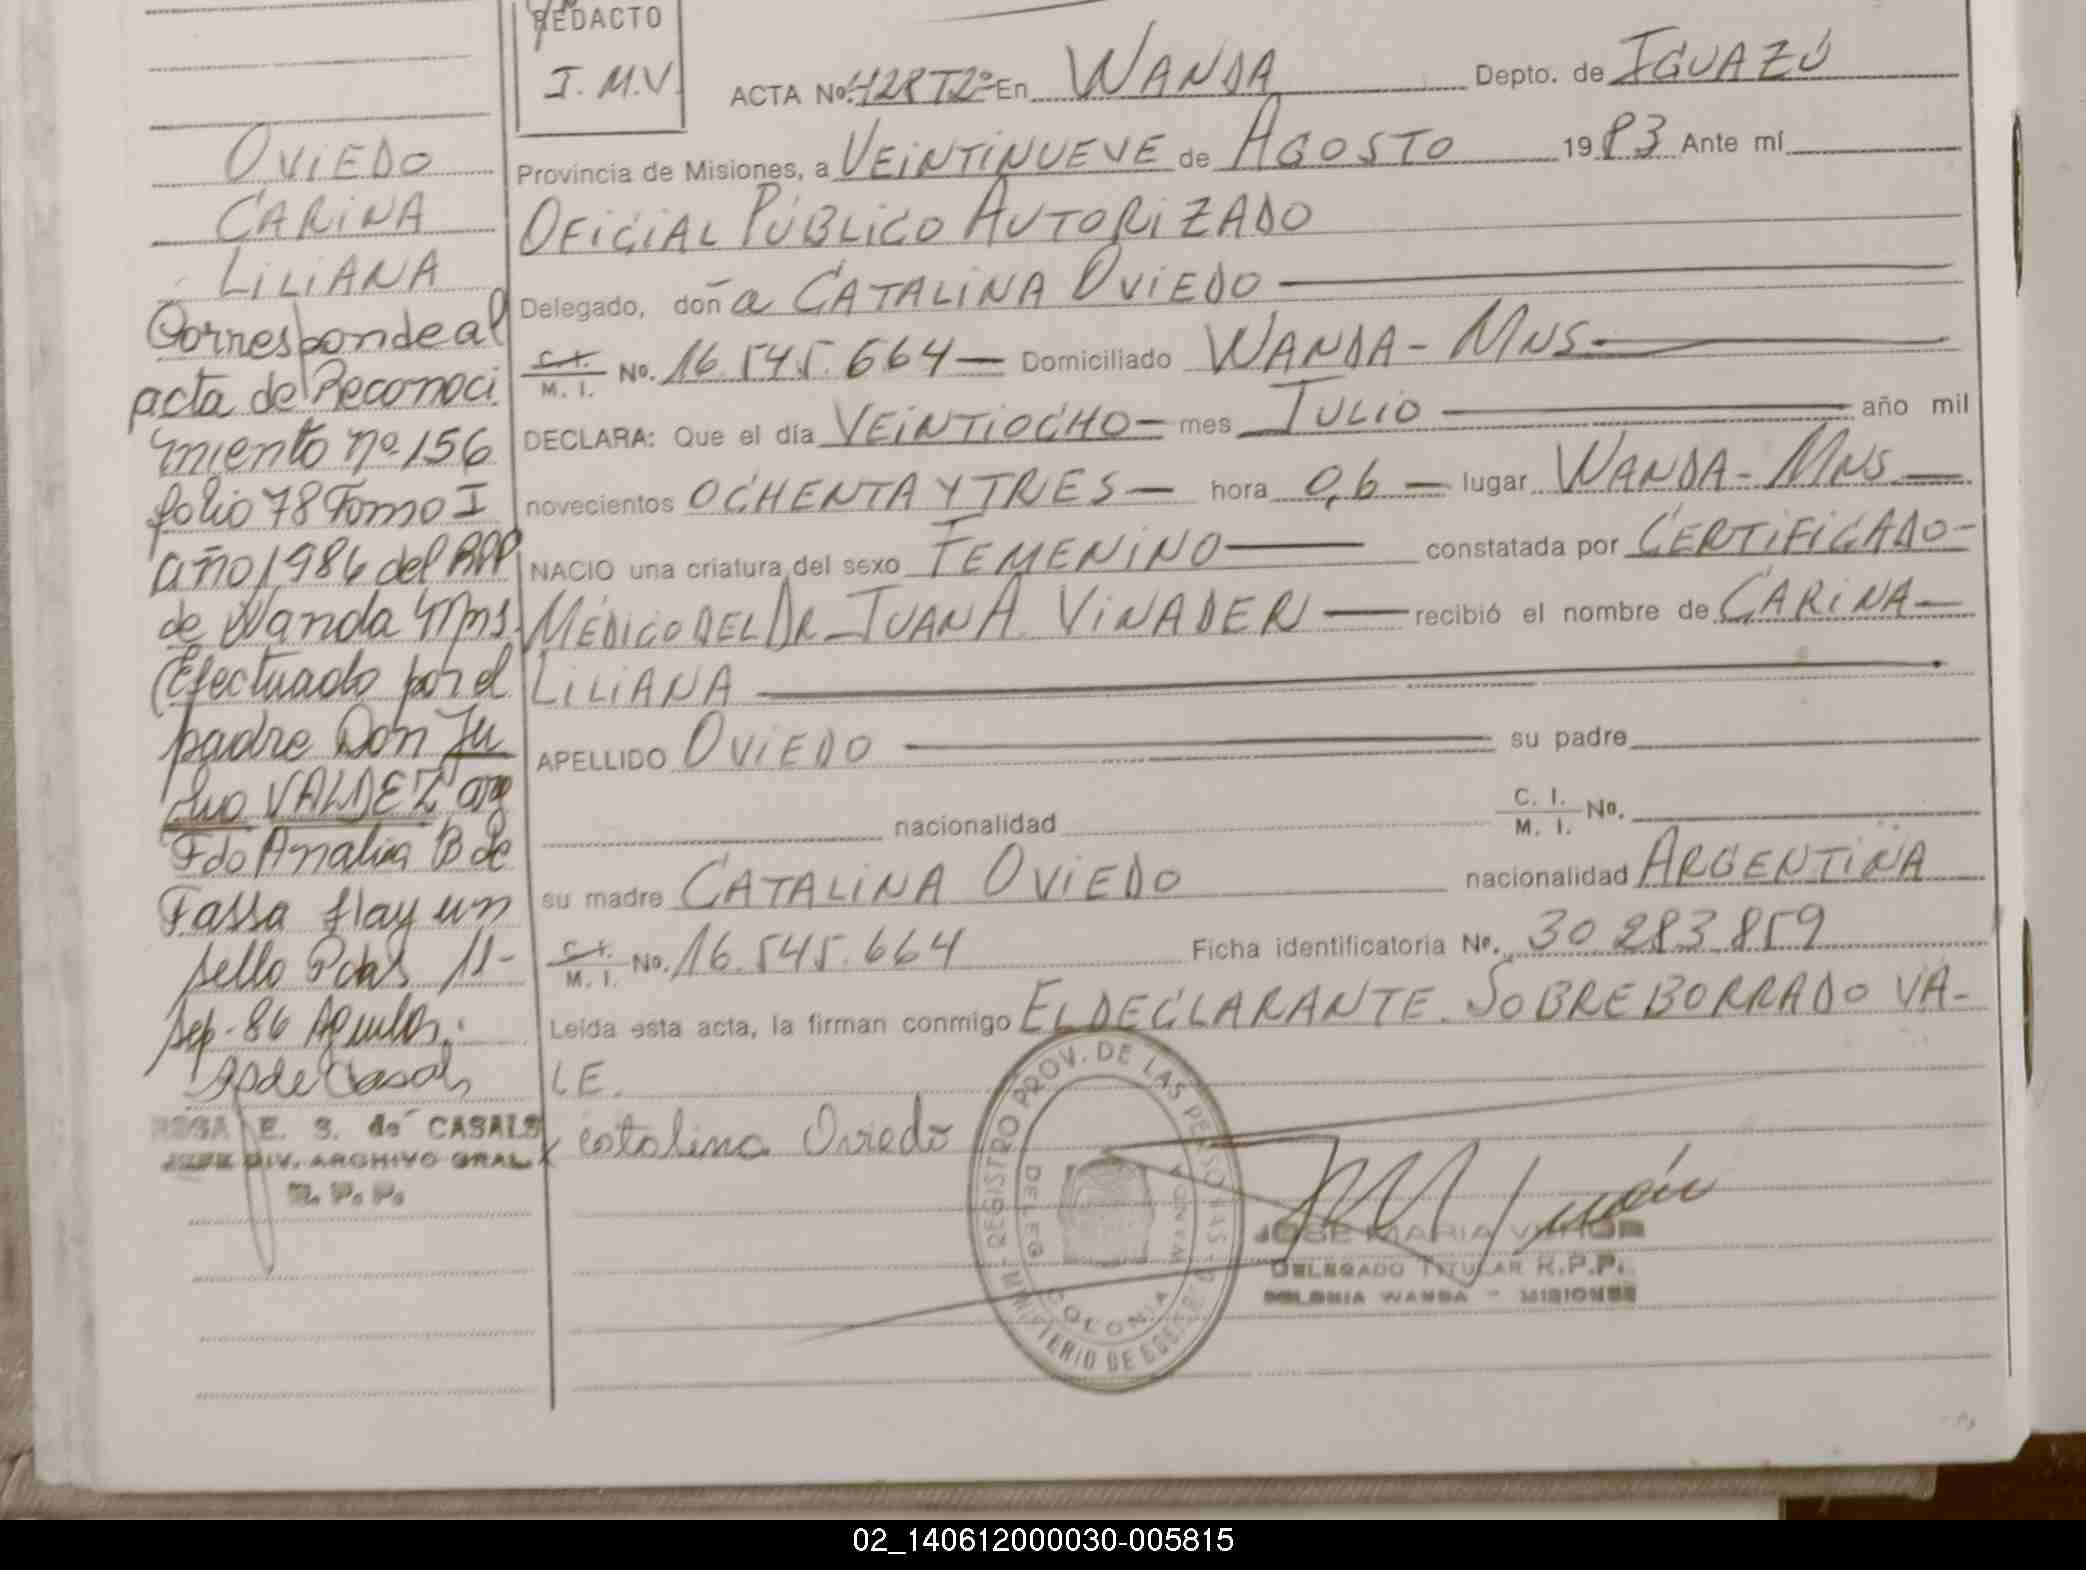 REDACTO
J. M.V.
ACTA No. 428 T2º En WANDA Depto. de IGUAZÚ
Provincia de Misiones, a VEINTINUEVE de AGOSTO 1983 Ante mí
OFICIAL PÚBLICO AUTORIZADO
Delegado, doña CATALINA OVIEDO
C. I. / M. I. No. 16.545.664 Domiciliado WANDA - MNS
DECLARA: Que el día VEINTIOCHO mes JULIO año mil
novecientos OCHENTA Y TRES hora 0,6 lugar WANDA - MNS
NACIO una criatura del sexo FEMENINO constatada por CERTIFICADO
MÉDICO DEL DR JUAN A. VINADER recibió el nombre de CARINA
LILIANA
APELLIDO OVIEDO su padre
nacionalidad C. I. / M. I. No.
su madre CATALINA OVIEDO nacionalidad ARGENTINA
C. I. / M. I. No. 16.545.664 Ficha identificatoria No. 30 283 859
Leída esta acta, la firman conmigo EL DECLARANTE. SOBREBORRADO VA-
LE.
catalina Oviedo
OVIEDO
CARINA
LILIANA
Corresponde al
acta de Reconoci
miento nº 156
folio 78 Tomo I
año 1986 del RPP
de Wanda Mns.
(Efectuado por el
padre Don Ju
lio VALDEZ arg
Fdo Analia B de
Fassa Hay un
sello Pdas 11-
sep-86
ROSA E. S. de CASALS
JEFE DIV. ARCHIVO GRAL
R. P. P.
REGISTRO PROV. DE LAS PERSONAS
MINISTERIO DE GOBIERNO
DELEG.
COLONIA
WANDA
JOSE MARIA
DELEGADO TITULAR R.P.P.
COLONIA WANDA - MISIONES
02_140612000030-005815